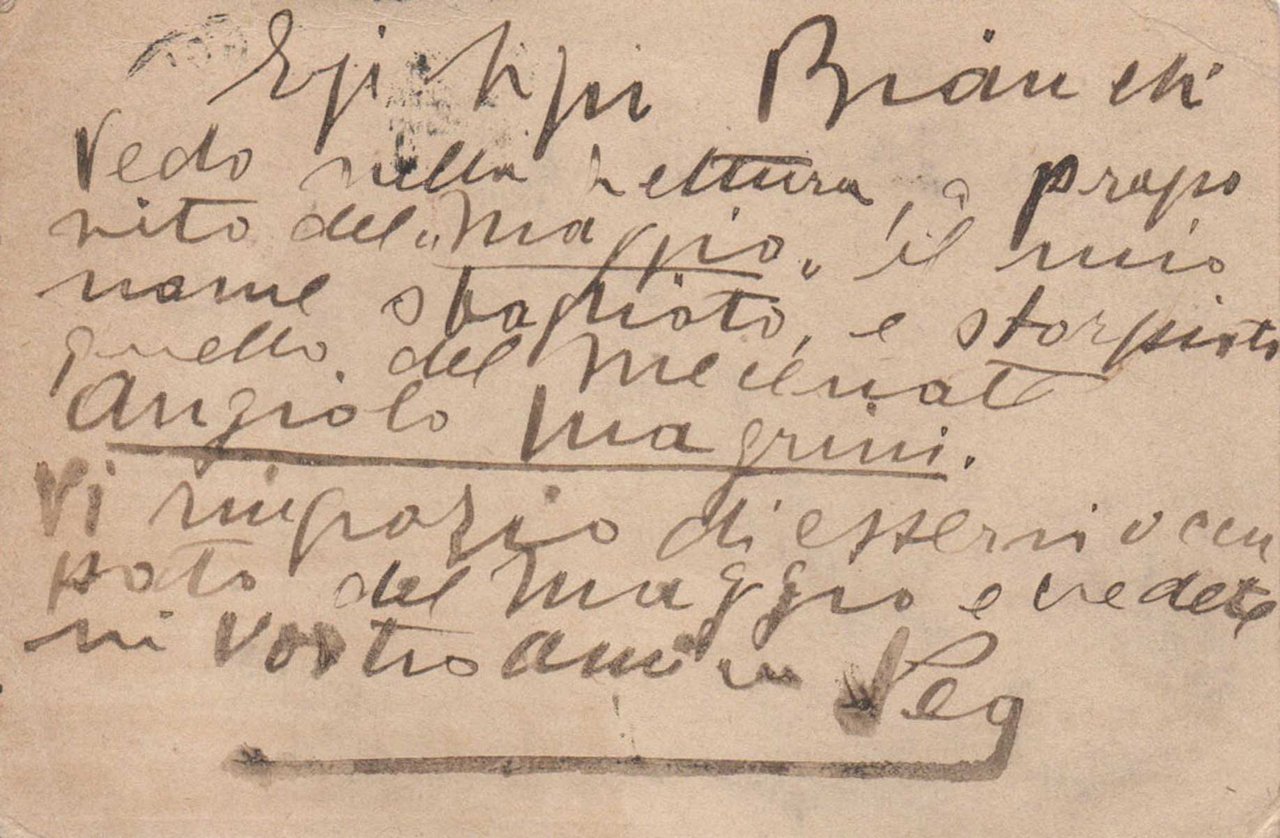 Bianchi
Vedo nella Lettura, a propo
sito del "Maggio" il mio
nome sbagliato, e storpiato
quello del Mecenate
Angiolo Magrini.
Vi ringrazio di esservi occu
pato del Maggio e credete
mi Vostro amico Pea